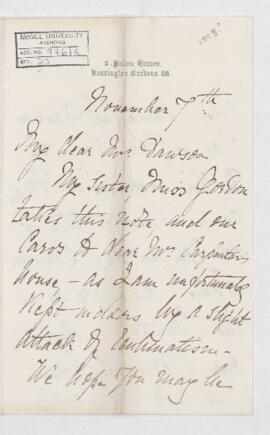 McGILL UNIVERSITY
ARCHIVES
ACC. NO. 976/5
REF. 23
2. Palace Houses,
Kensington Gardens, W.
November 7th
My dear Mrs Dawson
My sister Miss Gordon
takes this note and our
Cards to dear Mrs Carpenter's
house – as I am unfortunately
kept indoors by a slight
attack of Rheumatism –
We hope you may be